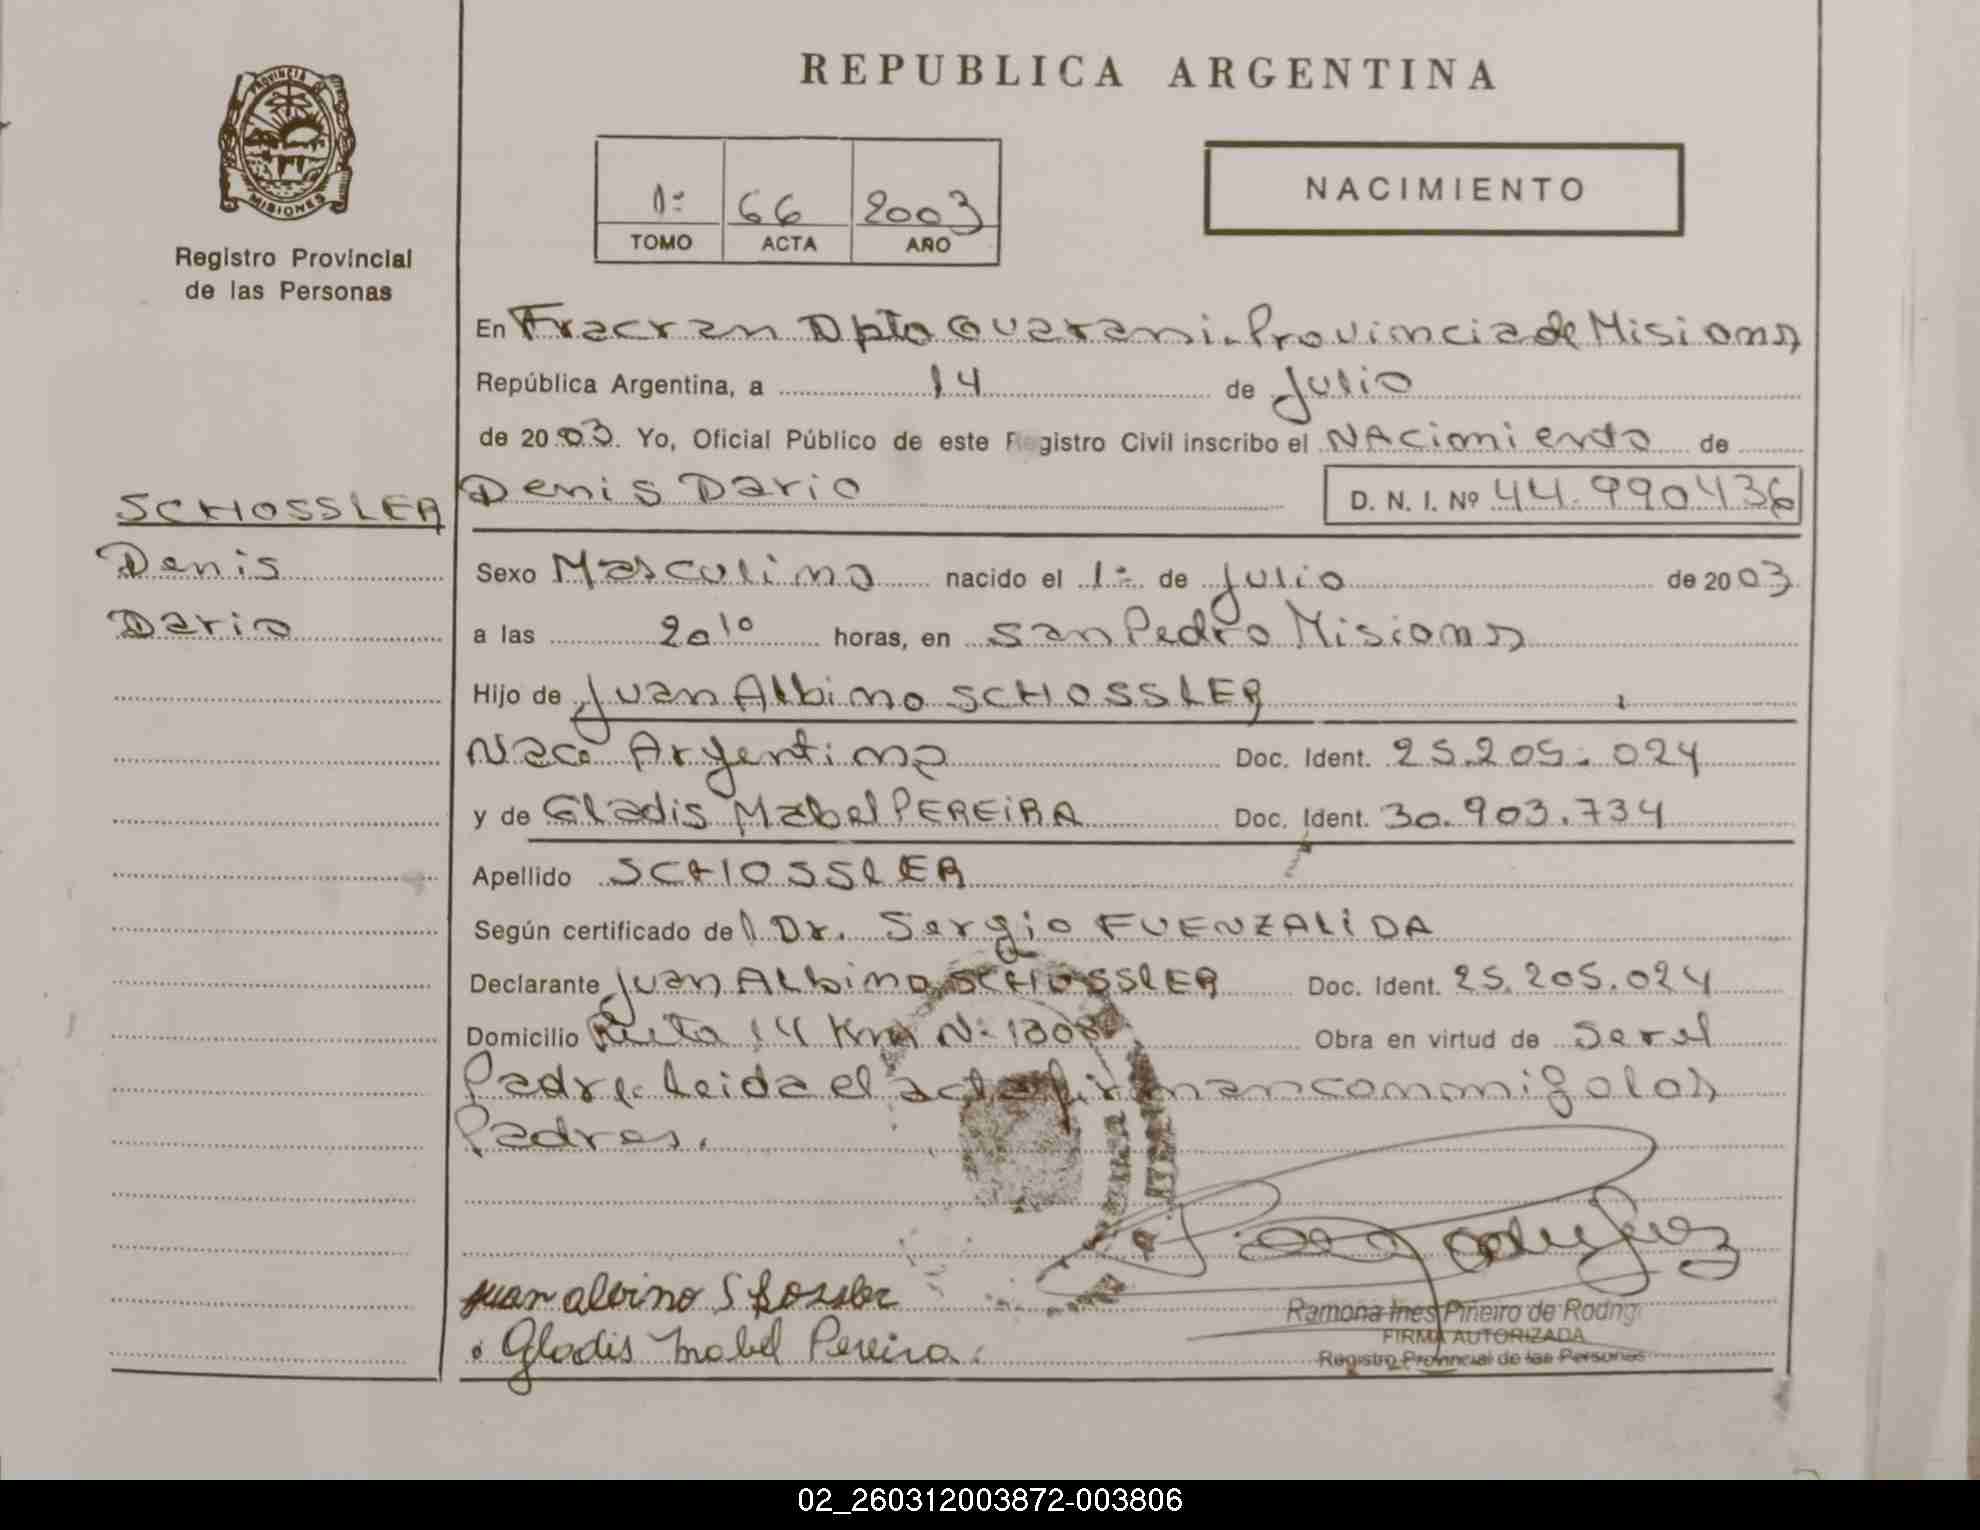 REPUBLICA ARGENTINA
PROVINCIA
MISIONES
Registro Provincial
de las Personas
1º 66 2003
TOMO ACTA AÑO
NACIMIENTO
En Fracran Dpto Guarani. Provincia de Misiones
República Argentina, a 14 de Julio
de 2003. Yo, Oficial Público de este Registro Civil inscribo el NAcimiento de
SCHOSSLER
Denis
Dario
Denis Dario D. N. I. Nº 44.990436
Sexo Masculino nacido el 1º de Julio de 2003
a las 20 10 horas, en San Pedro Misiones
Hijo de Juan Albino SCHOSSLER
Nac. Argentina Doc. Ident. 25.205.024
y de Gladis Mabel PEREIRA Doc. Ident. 30.903.734
Apellido SCHOSSLER
Según certificado del Dr. Sergio FUENZALIDA
Declarante Juan Albino SCHOSSLER Doc. Ident. 25.205.024
Domicilio Ruta 14 Km Nº 1308 Obra en virtud de ser el
Padre. leida el acta firman conmigo los
Padres.
Juan albino Skossler
Gladis Mabel Pereira.
Ramona Ines Piñeiro de Rodrig
FIRMA AUTORIZADA
Registro Provincial de las Personas
02_260312003872-003806